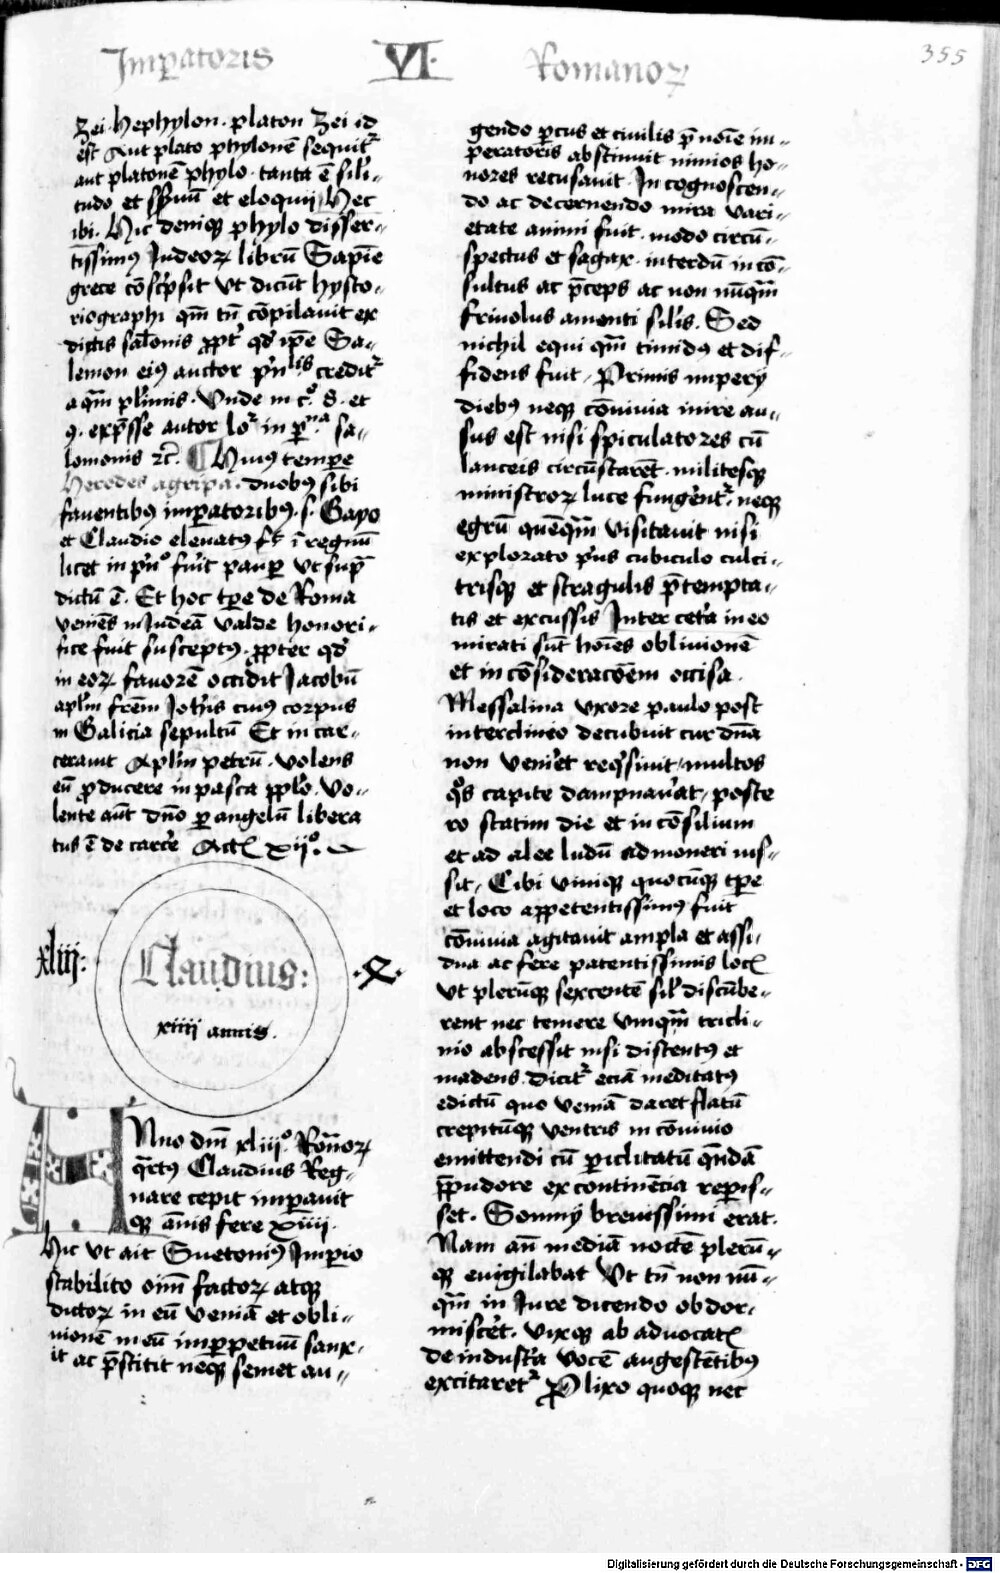 Imꝑatoris VI· Romanoꝝ
355
Zei hephylon · platon Zei id
est Aut plato phylonē sequit᷑
aut platonē phylo · tanta ē sili-
tudo et spm̄ et eloquii Hec
ibi · Hic deniqꝫ phylo disser-
tissimꝰ Judeoꝝ librū Sapiē
grece cōscͥpsit vt dicūt hysto-
riographi qm̄ tn̄ cōpilauit ex
dictis salōonis ꝓpt᷑ qd̓ ip̄e Sa-
lemon eiꝰ auctor pͥnlis credit᷑
aqm̄ plimis · Vnde in c̊. 8. et
9. exp̄sse autor loꝛ in ꝑna sa-
lomonis ⁊c̄. ¶ Huius tempe
Heredes agripa · duobꝰ sibi
fauentibꝰ imꝑatoribꝰ · s · Gayo
et Claudio eleuatꝰ f̄t ī regnū
licet in pͥno fuit pauꝑ vt sup̄
dictū ē. Et hoc tꝑe de Roma
veniēs in Judeā valde honori-
fice fuit susceptꝰ · ꝓpter qd̓
in eoꝝ fauorē occidit Jacobū
aplm̄ frēm Joh̄is cuiꝰ corpus
in Galicia sepultū Et in car-
cerauit Aplm̄ petrū · volens
eū ꝓducere in pasca pplo̊. Vo-
lente aūt dn̄o ꝑ angelū libera
tus ē de carcēe Act᷑ xiiͦ.
xliij: Claudius: ·R·
xiiii annis.
Anno dn̄i xliijͦ. Rom̄oꝝ
qͣrtꝰ Claudius Reg-
nare cepit imꝑauit
qꝫ ān̄is fere xiiij.
Hic vt ait Suetoniꝰ Imꝑio
stabilito oīm̄ factoꝝ atqꝫ
dictoꝝ in eū veniā et obli-
uionē in eū imꝑpetuū sanx-
it ac p̄stitit neqꝫ semet au-
gendo ꝑcus et ciuilis p̄ noīe im-
peratoris abstinuit nimios ho-
nores recusauit · In cognoscen-
do ac decernendo mira vari-
etate animi fuit · modo circū-
spectus et sagax · interdū incō-
sultus ac p̄ceps ac non nūqm̄
friuolus amenti silis. Sed
nichil equi qm̄ timidꝰ et dif-
fidens fuit · Primis impery
diebꝰ neqꝫ cōuiuia inire au-
sus est nisi spiculatores cū
lanceis circūstarēt · militesqꝫ
ministroꝝ luce fungēnt᷑ · neqꝫ
egrū quēqm̄ visitauit nisi
explorato pͥus cubiculo culci-
trisqꝫ et stragulis p̄tempta-
tis et excussis Inter ceta̓ in eo
mirati sūt hoīes obliuionē
et in cōsideracōem occisa ·
Messalina vxore paulo post
in triclineo decubuit cur dn̄a
non venīet reqͥsiuit · multos
qͦs capite dampnauāt · poste
ro statim die et in cōsilium
et ad alee ludū admoneri ius-
sit · Cibi viniqꝫ quocūqꝫ tꝑe
et loco appetentissimꝰ fuit
cōuiuia agitauit ampla et assi-
dua ac fere patentissimis loc᷑
vt plerūqꝫ sexcentē sil̓ discūbe-
rent nec temere vnqm̄ tricli-
nio abscessit nisi distentꝰ et
madens · dicit᷑ eciā meditatꝰ
edictū quo veniā daret flatū
crepitūqꝫ ventris in cōuiuio
emittendi cū ꝑiclitatū qn̄dā
p̄pudore ex continēcia reꝑis-
set. Somny breuissimi erat.
Nam an̄ mediā noctē plerū-
qꝫ euigilabat vt tn̄ non nū-
qm̄ in Jure dicendo obdor-
miscēt · vixqꝫ ab aduocat᷑
de industͥa vocē augestētibꝰ
excitaret᷑ Prolixo quoqꝫ nec
Digitalisierung gefördert durch die Deutsche Forschungsgemeinschaft - DFG